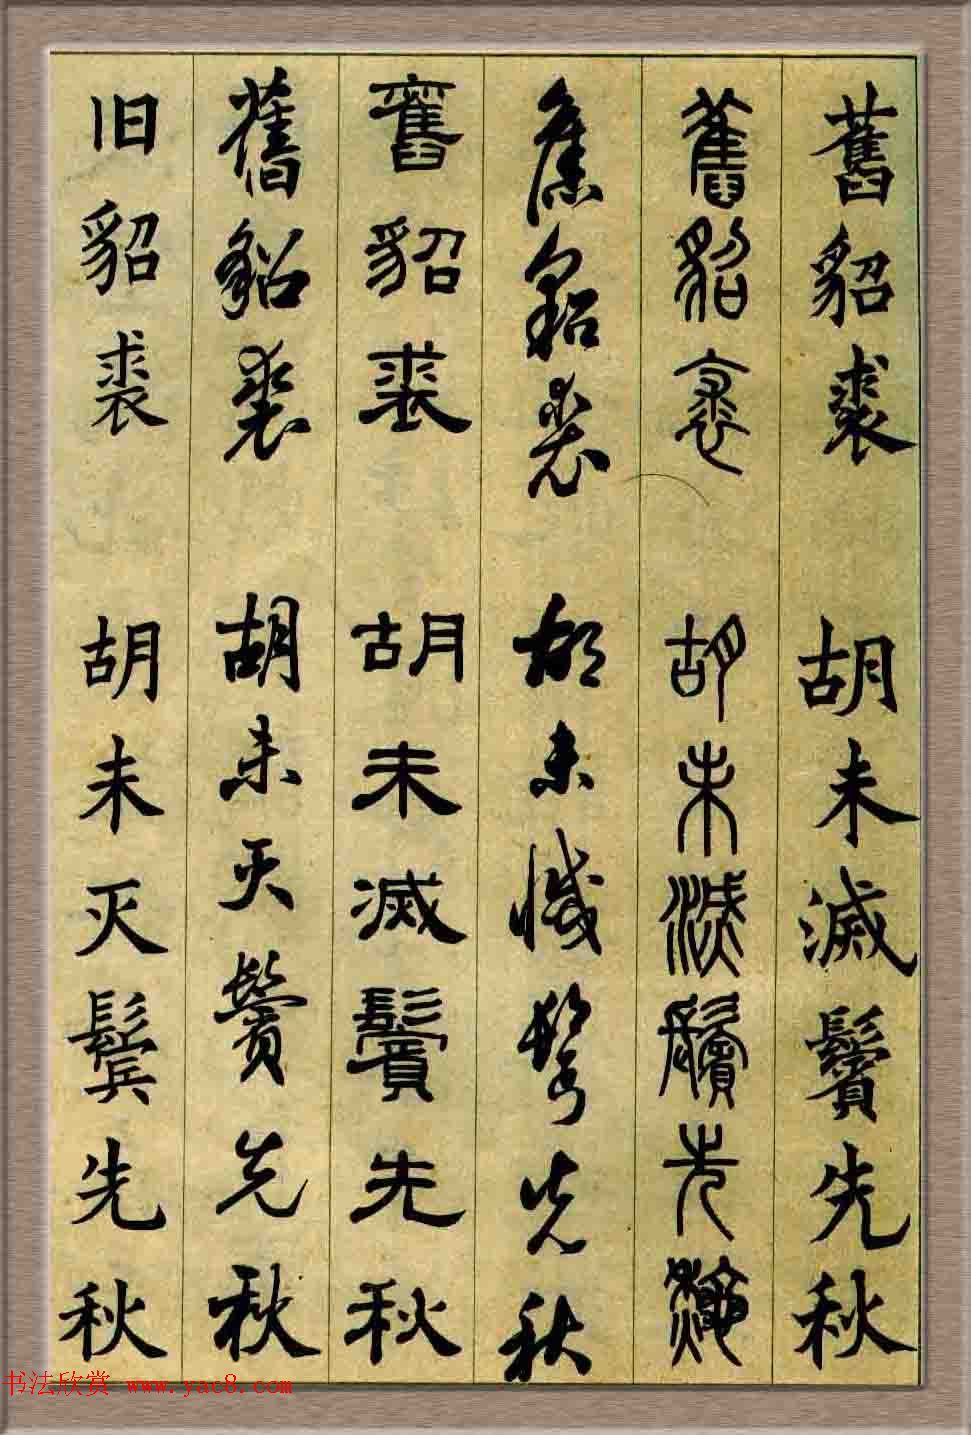 舊貂裘 胡未滅鬢先秋
舊貂裘 胡未滅鬢先秋
舊貂裘 胡未滅鬢先秋
舊貂裘 胡未滅鬢先秋
舊貂裘 胡未灭鬢先秋
旧貂裘 胡未灭鬓先秋
书法欣赏 www.yac8.com